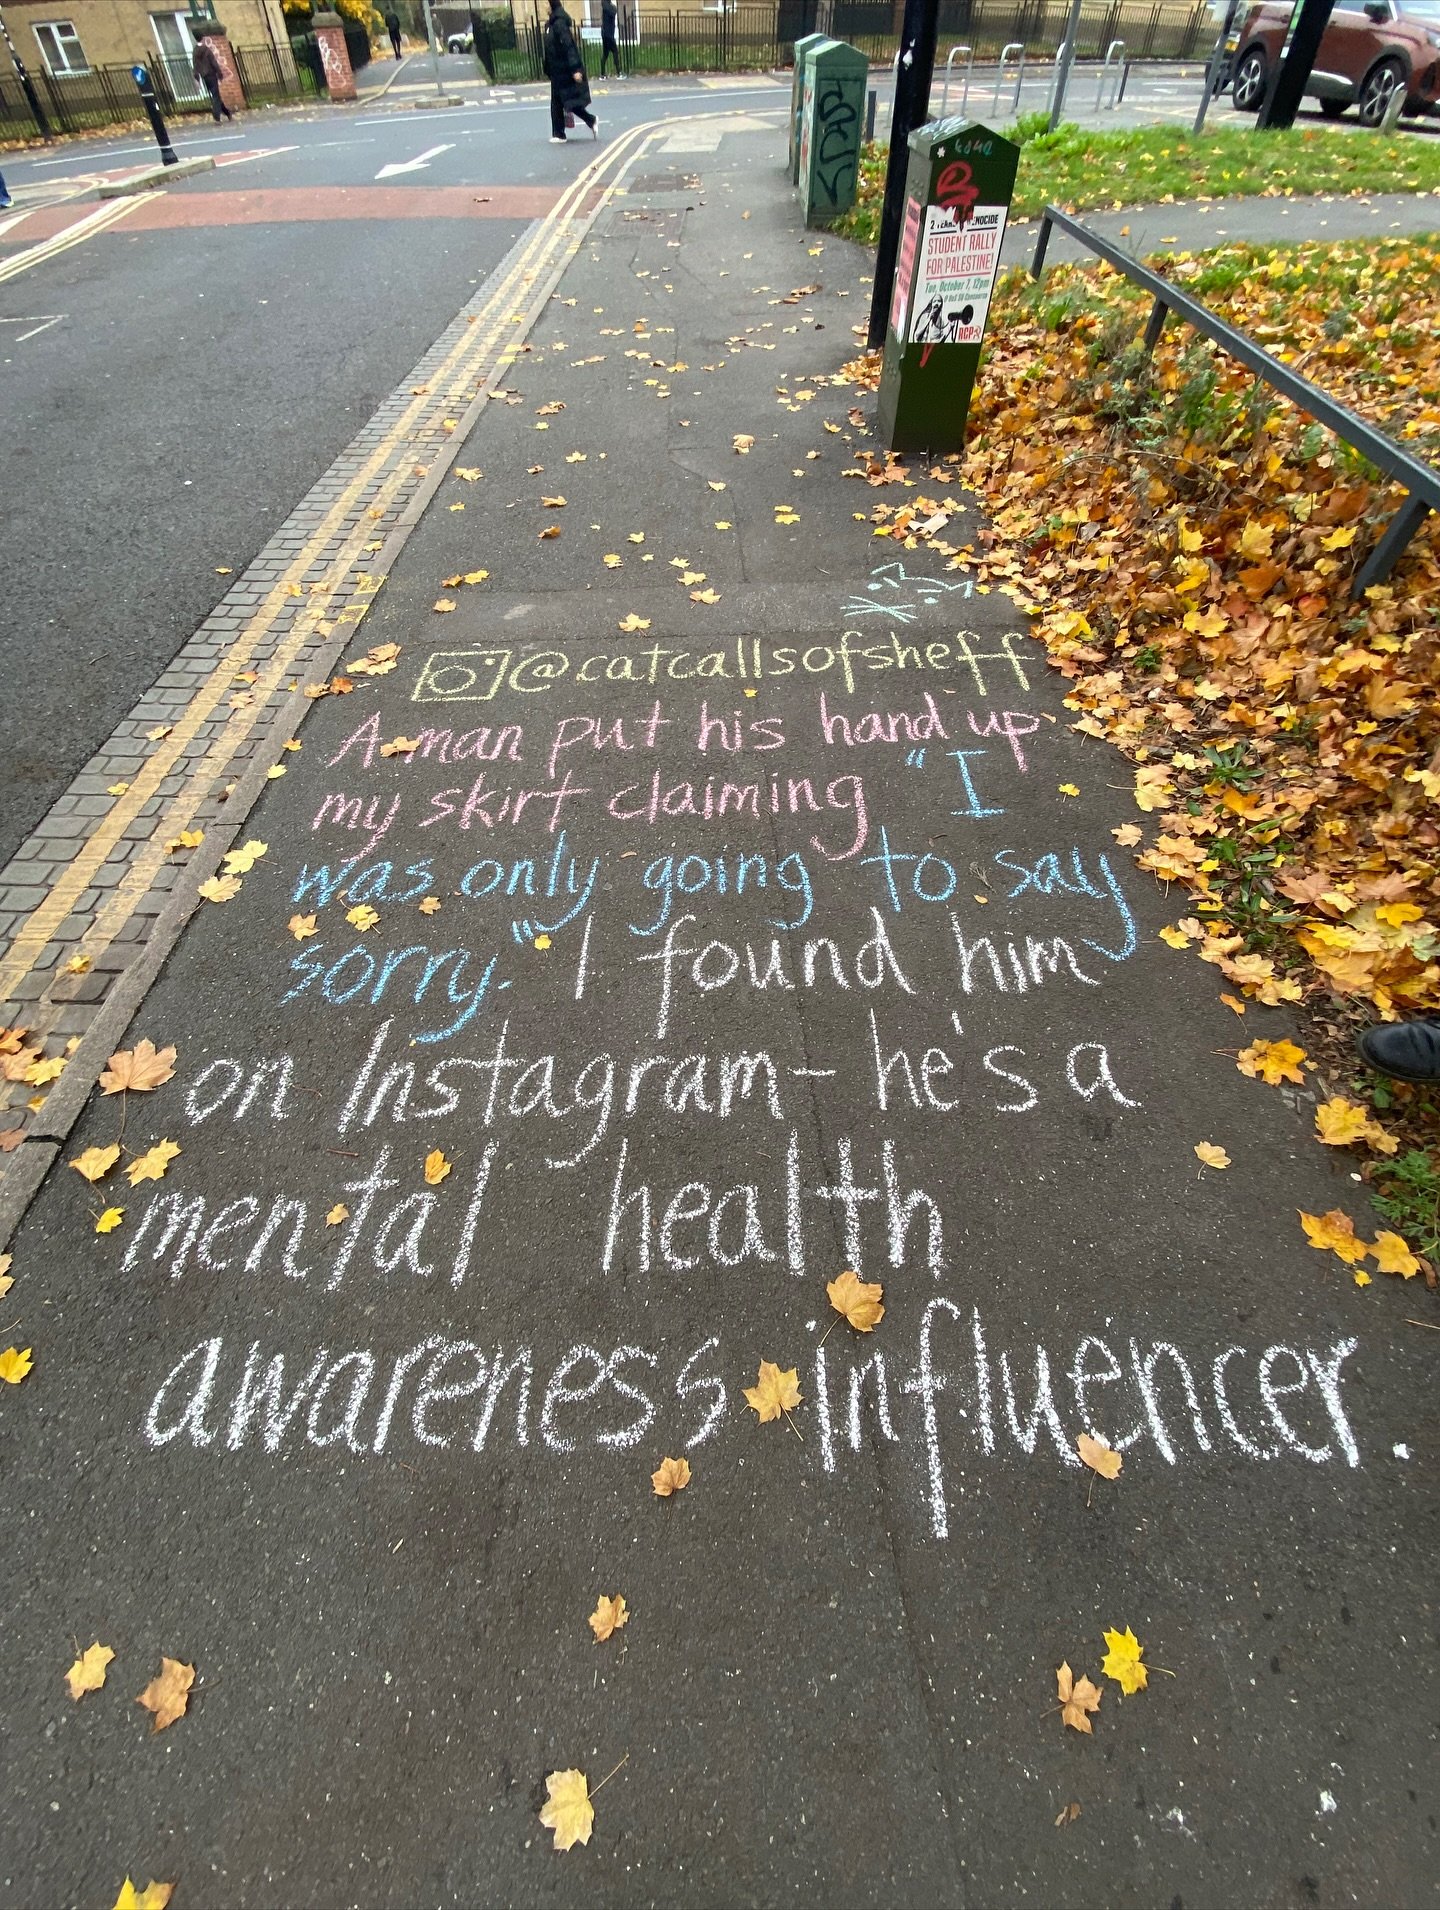 @catcallsofsheff
A man put his hand up
my skirt claiming "I
was only going to say
sorry." I found him
on Instagram- he's a
mental health
awareness influencer.
STUDENT RALLY
FOR PALESTINE!
Tue, October 7, 12pm
RCP